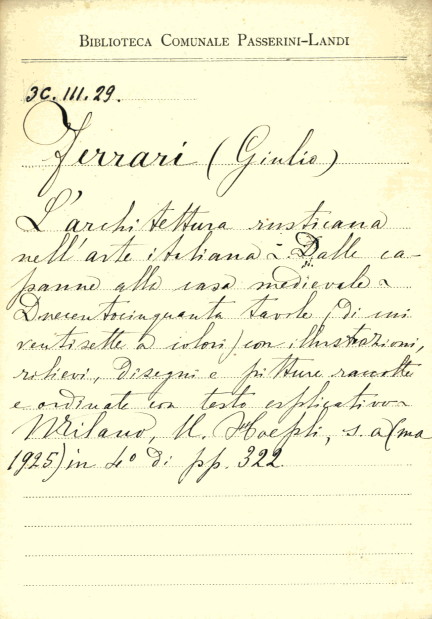 BIBLIOTECA COMUNALE PASSERINI-LANDI
3C. III. 29.
Ferrari (Giulio)
L'architettura rusticana
nell'arte italiana - Dalle ca-
panne alla casa medievale -
Duecentocinquanta tavole (di cui
ventisette a colori) con illustrazioni,
rilievi, disegni e pitture raccolte
e ordinate con testo esplicativo -
Milano, U. Hoepli, s. a (ma
1925) in 4° di pp. 322.